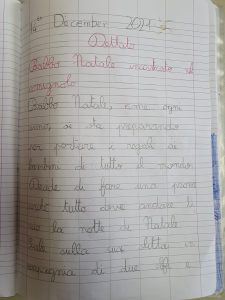 14th December 2021
Dettato
Babbo Natale incontra il
Babbo Natale, come ogni
anno, si sta preparando
per portare i regali ai
bambini di tutto il mondo.
Decide di fare una prova
tutto dove andare
la notte di Natale
Sale sulla sua slitta in
compagnia di due elfi e